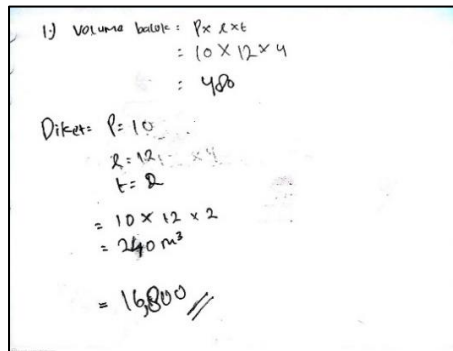 1.) Volume balok : P x l x t
= 10 x 12 x 4
: 480
Diket = P = 10
l = 12, x 4
t = 2
= 10 x 12 x 2
= 240 m³
= 16,800